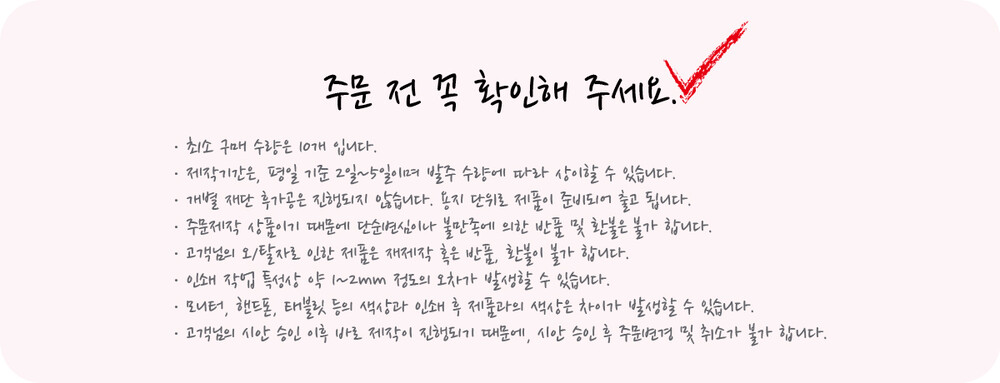 주문 전 꼭 확인해 주세요.
· 최소 구매 수량은 10개 입니다.
· 제작기간은, 평일 기준 2일~5일이며 발주 수량에 따라 상이할 수 있습니다.
· 개별 재단 후가공은 진행되지 않습니다. 용지 단위로 제품이 준비되어 출고 됩니다.
· 주문제작 상품이기 때문에 단순변심이나 불만족에 의한 반품 및 환불은 불가 합니다.
· 고객님의 오/탈자로 인한 제품은 재제작 혹은 반품, 환불이 불가 합니다.
· 인쇄 작업 특성상 약 1~2mm 정도의 오차가 발생할 수 있습니다.
· 모니터, 핸드폰, 태블릿 등의 색상과 인쇄 후 제품과의 색상은 차이가 발생할 수 있습니다.
· 고객님의 시안 승인 이후 바로 제작이 진행되기 때문에, 시안 승인 후 주문변경 및 취소가 불가 합니다.